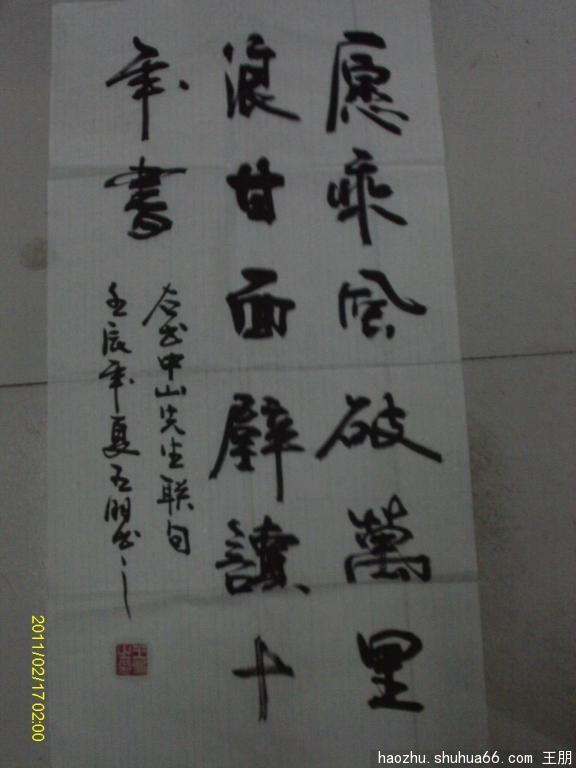 愿乘风破萬里
浪甘面壁讀十
年書
右书中山先生联句
壬辰年夏王朋书之
2011/02/17 02:00
haozhu.shuhua66.com 王朋